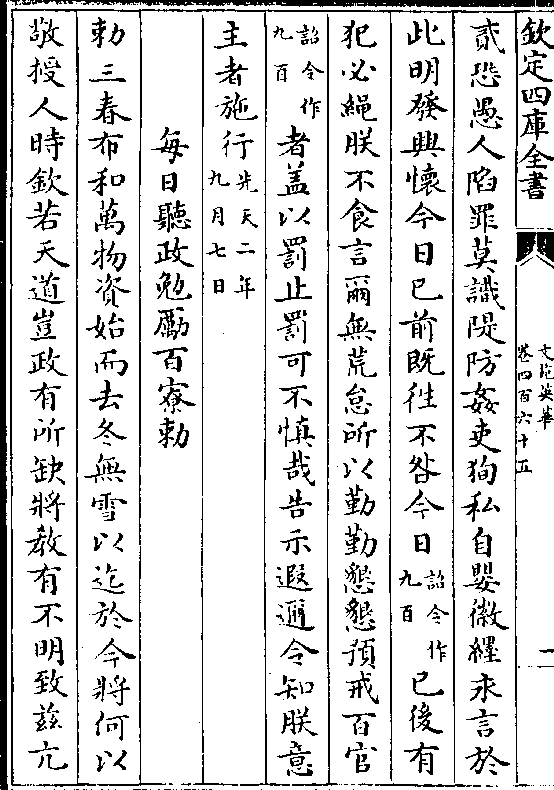 欽定四庫全書
文苑英華
卷四百六十五
一
貳恐愚人陷罪莫識隄防姦吏狥私自嬰徽纆永言於
此明發興懷今日已前既徃不咎今日詔令作九百已後有
犯必繩朕不食言爾無荒怠所以勤勤懇懇預戒百官
詔令作九百者盖以罰止罰可不慎哉告示遐邇令知朕意
主者施行先天二年九月七日
每日聽政勉勵百寮勅
勅三春布和萬物資始而去冬無雪以迄於今將何以
敬授人時欽若天道豈政有所缺將教有不明致兹亢